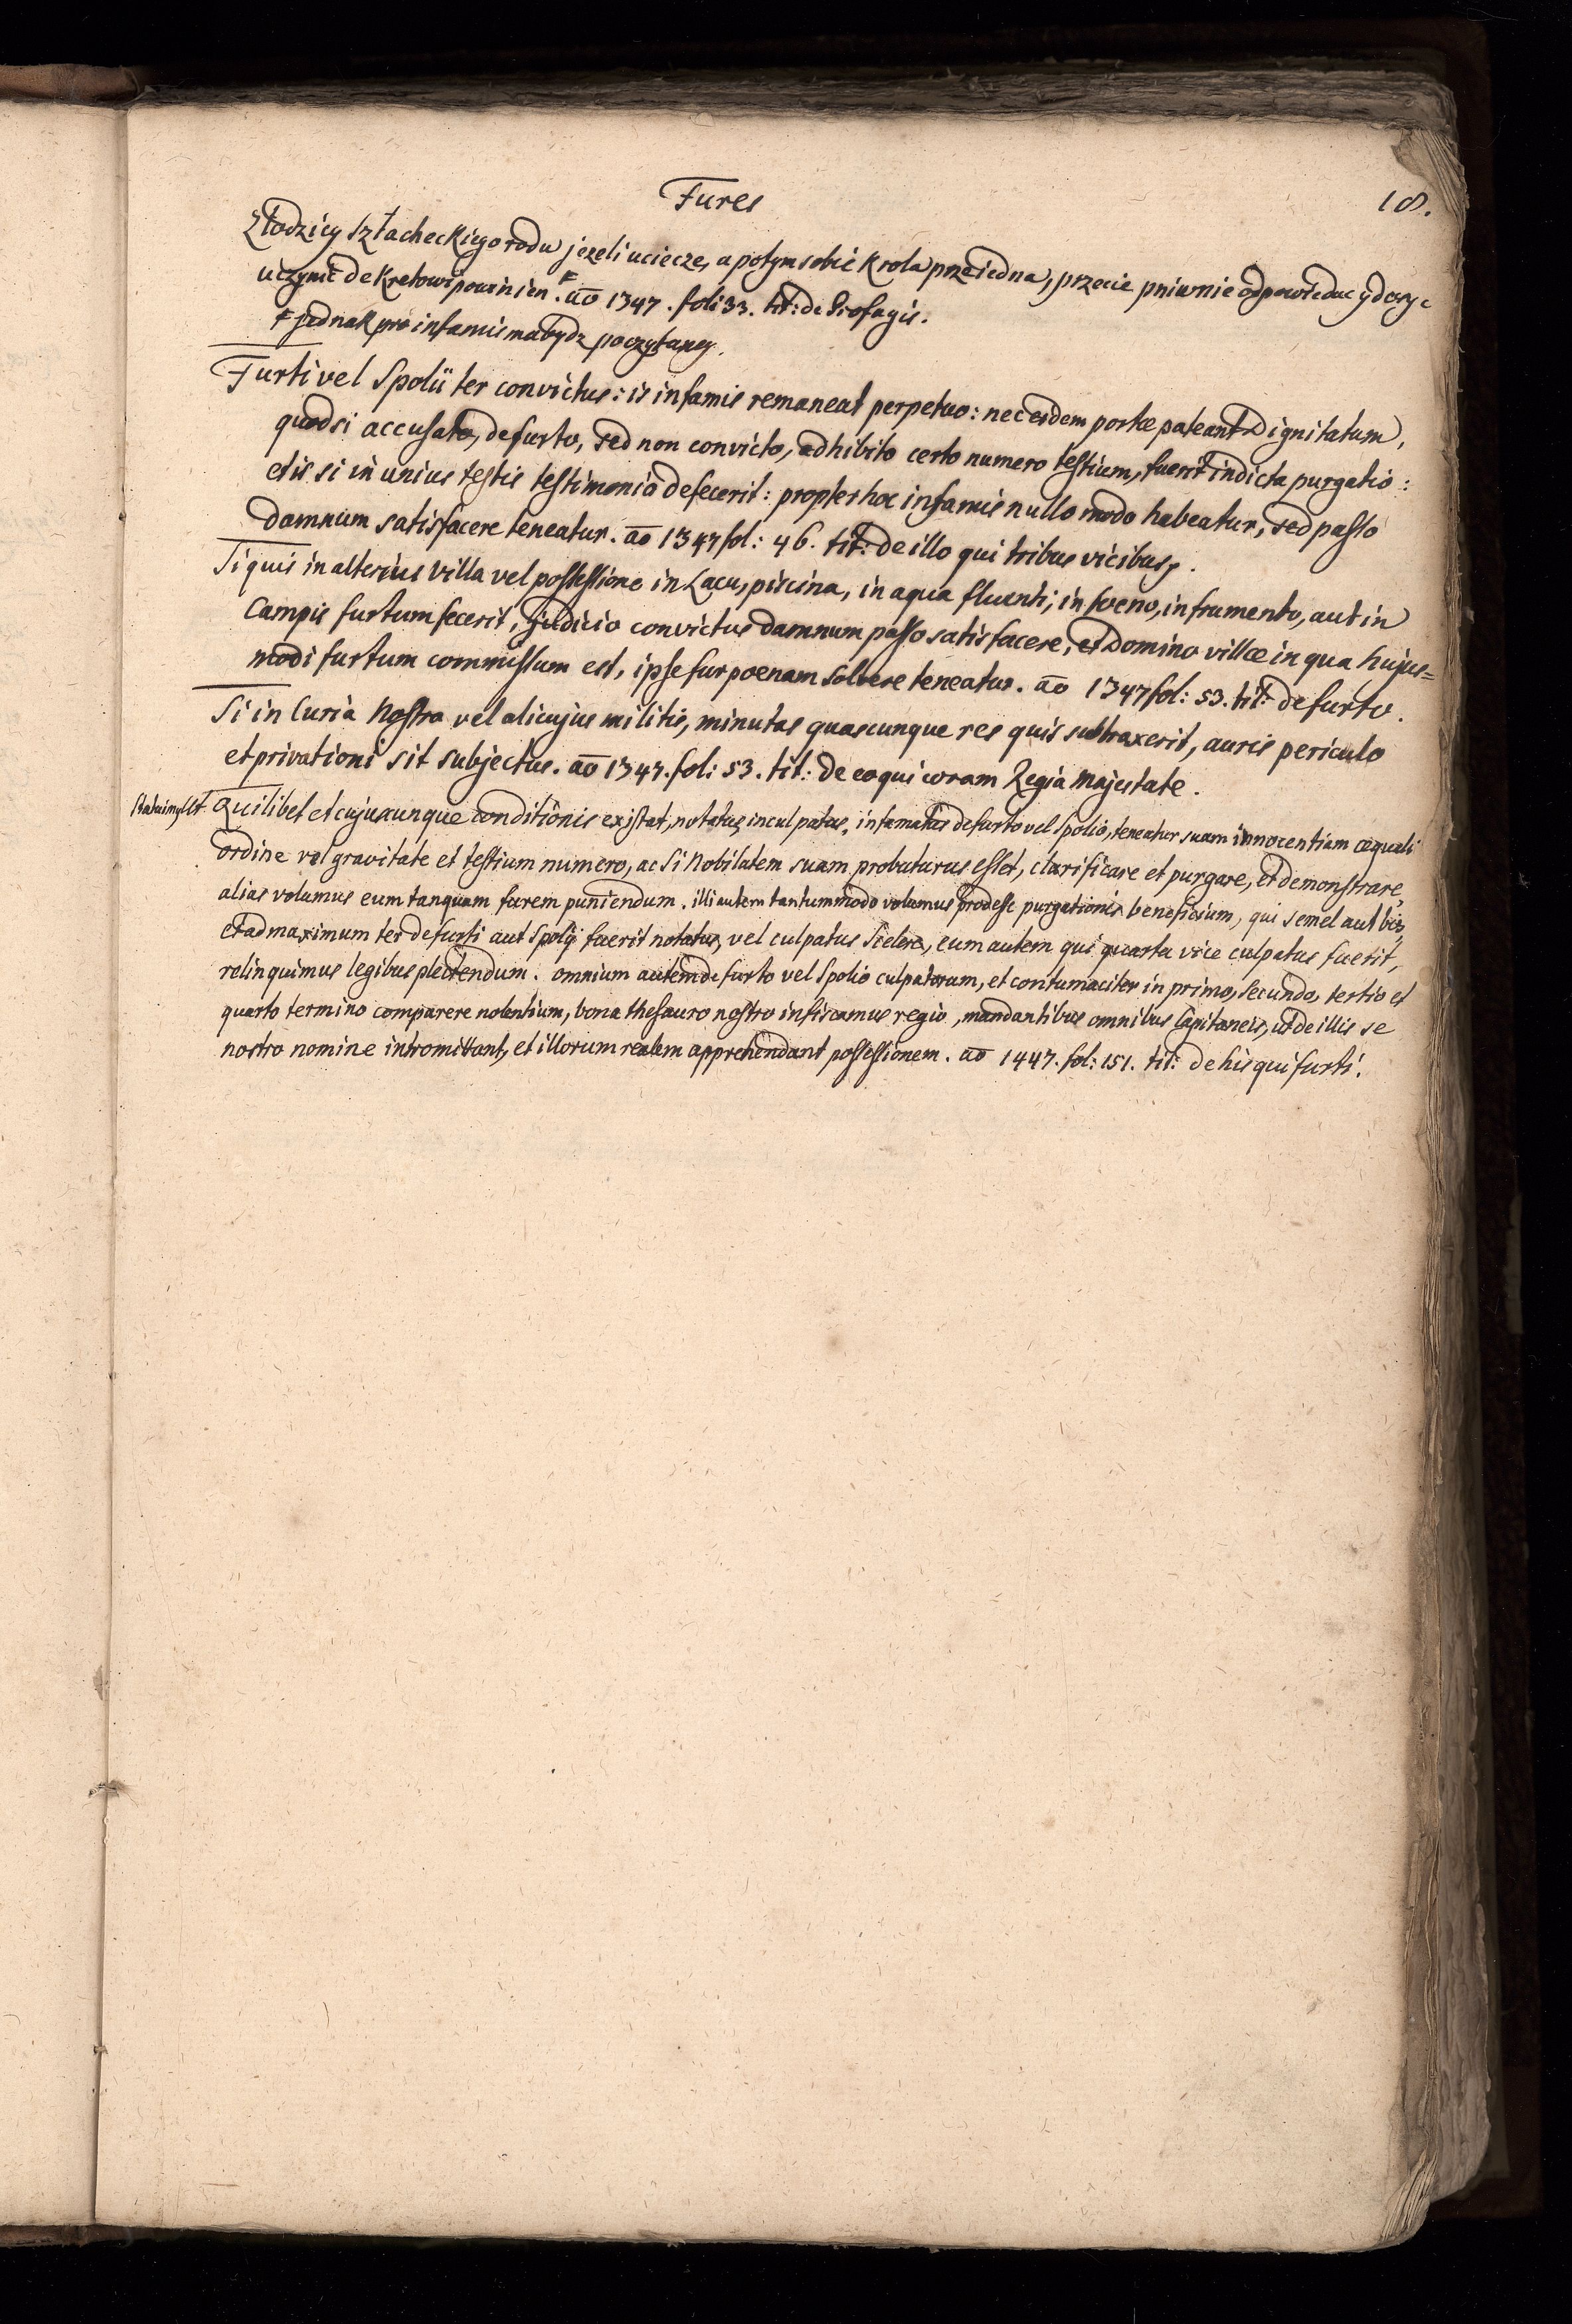 Fures
18.
Złodziey Szłacheckiego rodu jezeli uciecze, a potym sobie Krola przeiedna, przecie powinnie odpowiedac y dosyc
uczynić dekretowi powinien. # ao 1347. fol: 33. tit: de Profugis.
# jednak pro infamis ma bydz poczytany.
Furti vel Spolii ter convictus: is infamis remaneat perpetuo: nec eidem portæ pateant Dignitatum,
quodsi accusato, de furto, sed non convicto, adhibito certo numero testium, fuerit indicta purgatio:
et is si in unius testis testimonio defecerit: propter hoc infamis nullo modo habeatur, sed passo
damnum satisfacere teneatur. ao 1347 fol: 46. tit: de illo qui tribus vicibus.
Si quis in alterius villa vel possessione in Lacu, piscina, in aqua fluenti, in foeno, in frumento, aut in
Campis furtum fecerit, judicio convictus damnum passo satisfacere, et Domino villæ in qua hujus=
modi furtum commissum est, ipse fur poenam solvere teneatur. ao 1347 fol: 53. tit: de furto.
Si in Curia Nostra vel alicujus militis, minutas quascunque res quis subtraxerit, auris periculo
et privationi sit subjectus. ao 1347. fol: 53. tit: de eo qui coram Regia Majestate.
Statuimus Ut Quilibet et cujuscunque conditionis existat, notatus, inculpatus, infamatus de furto vel Spolio, teneatur suam innocentiam æquali
ordine vel gravitate et testium numero, ac Si Nobilitatem suam probaturus esset, clarificare et purgare, et demonstrare,
alias volumus eum tanquam furem puniendum. illi autem tantummodo volumus prodesse purgationis beneficium, qui semel aut bis,
et ad maximum ter de furti aut Spolij fuerit notatus, vel culpatus Scelere, eum autem qui quarta vice culpatus fuerit,
relinquimus legibus plectendum. omnium autem de furto vel Spolio culpatorum, et contumaciter in primo, secundo, tertio et
quarto termino comparere nolentium, bona thesauro nostro infiscamus regio, mandantibus omnibus Capitaneis, ut de illis se
nostro nomine intromittant, et illorum realem apprehendant possessionem. ao 1447. fol: 151. tit: de his qui furti.